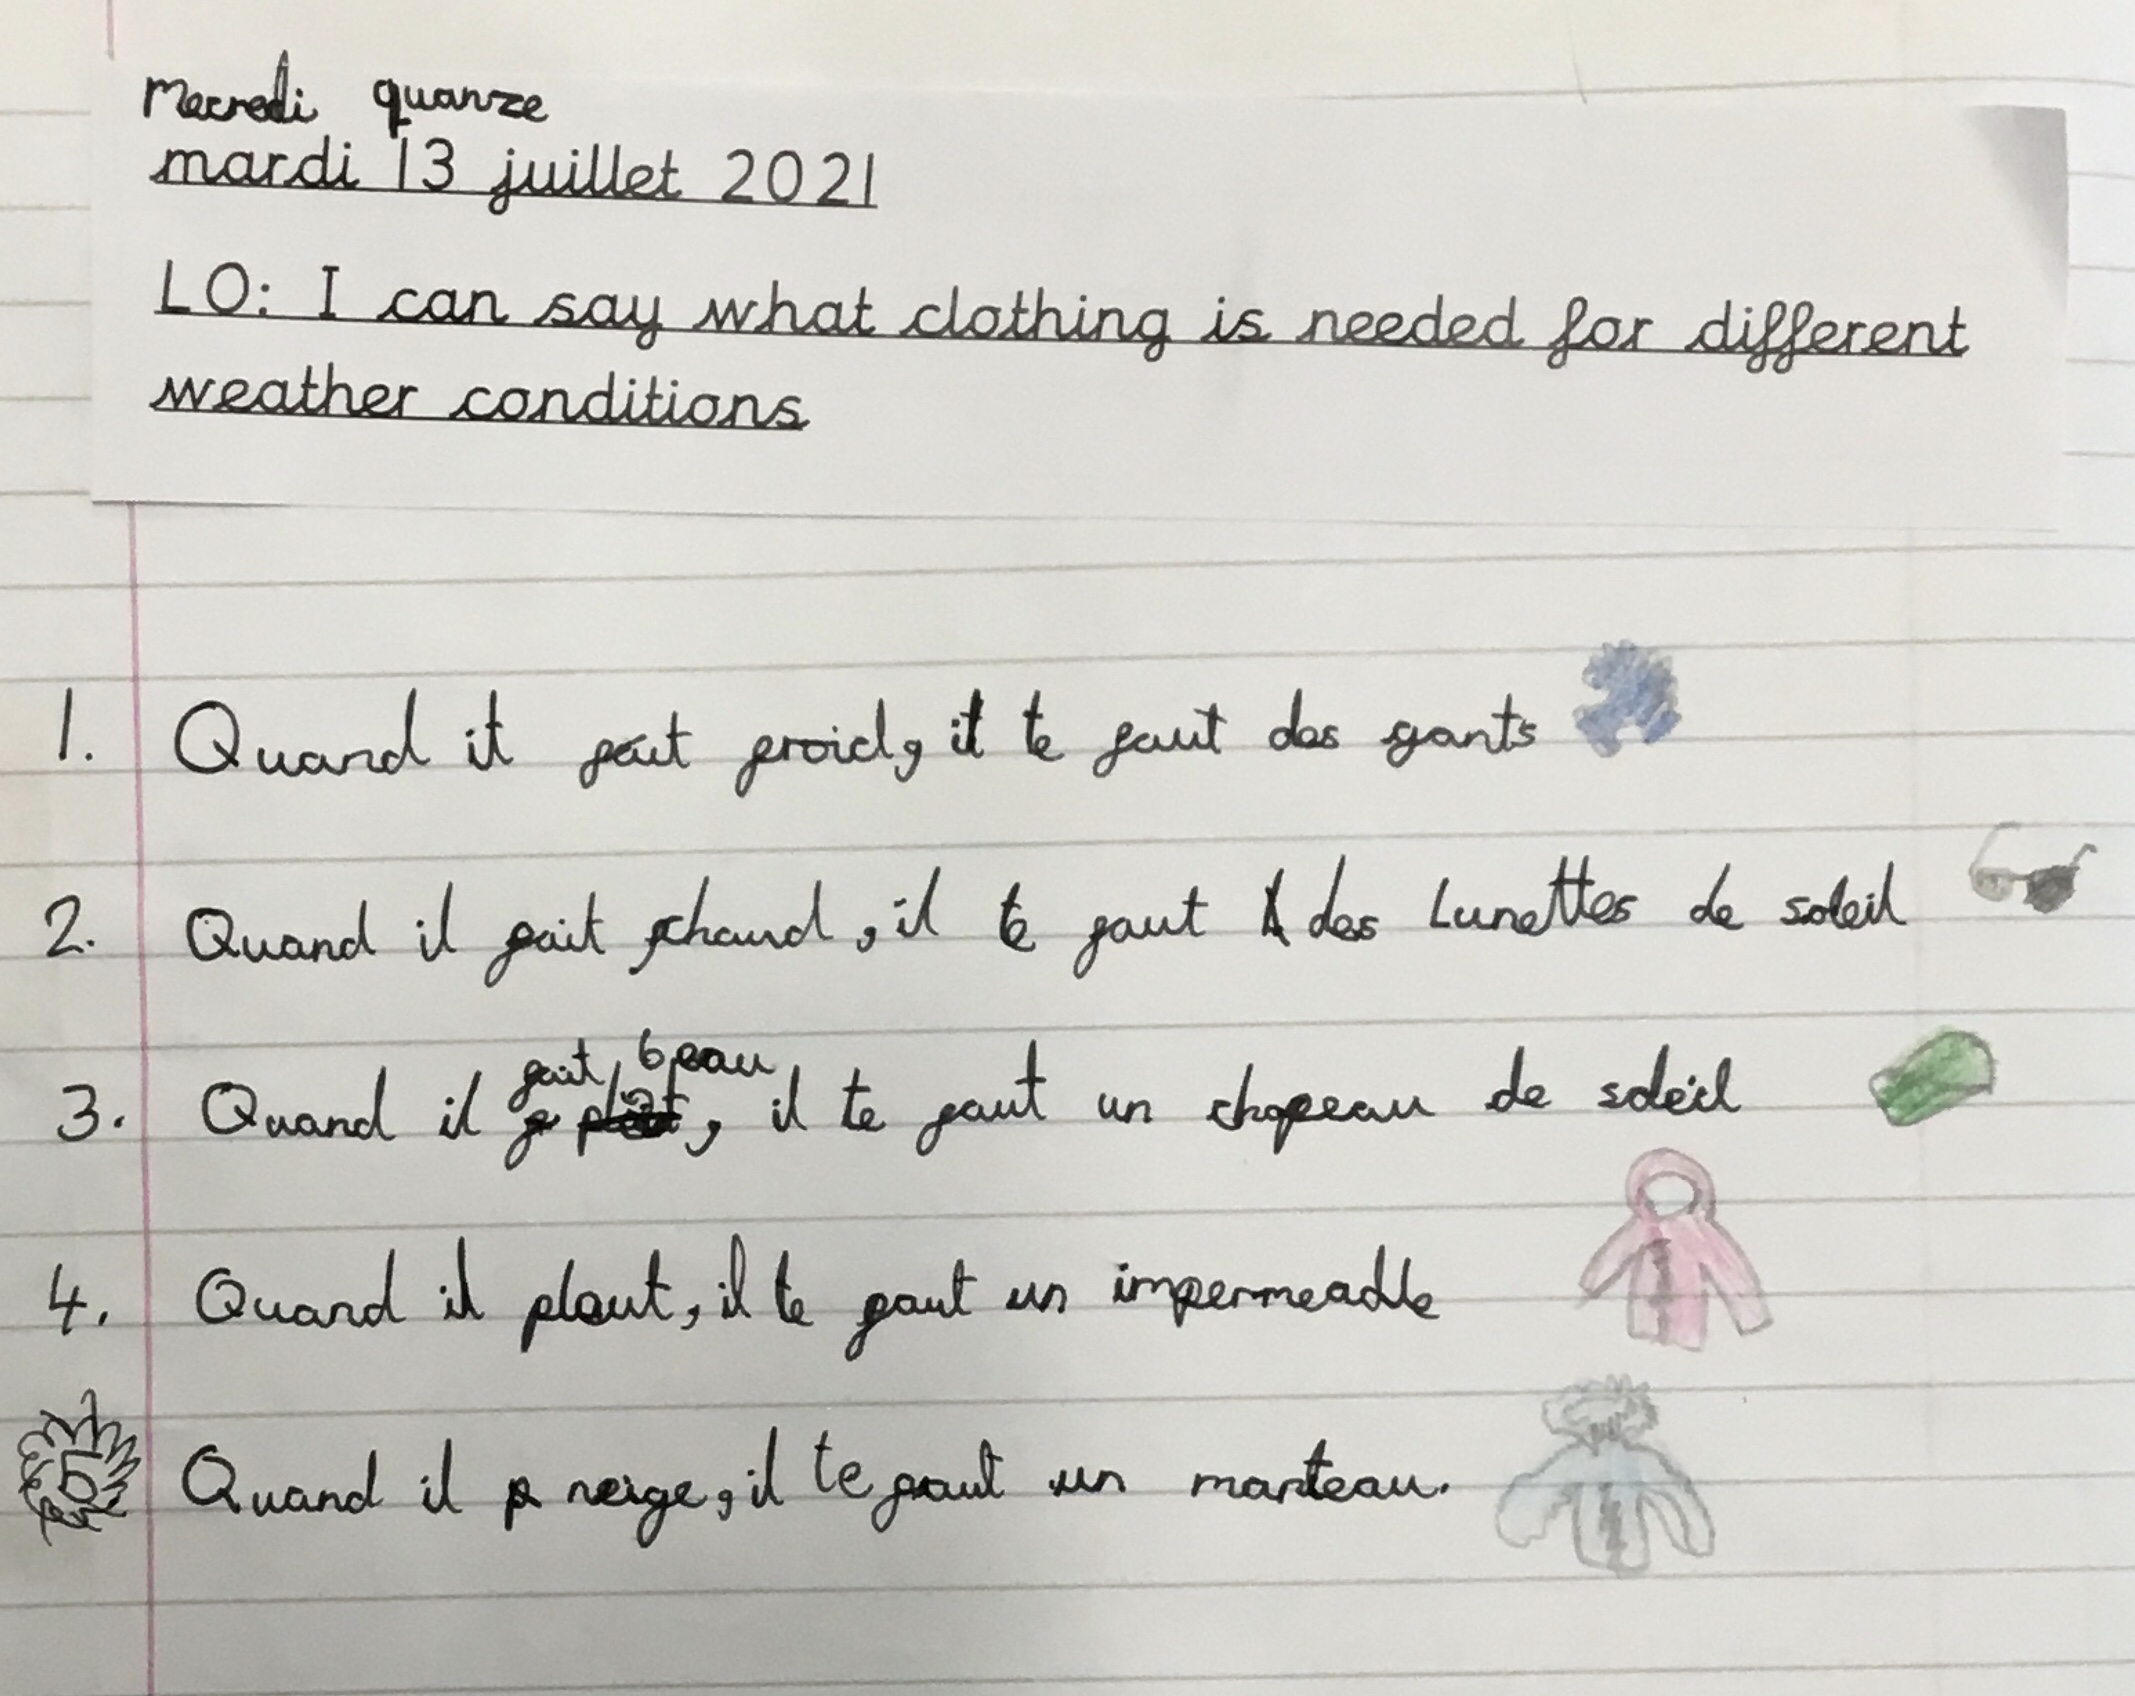 Mecredi quanze
mardi 13 juillet 2021
LO: I can say what clothing is needed for different
weather conditions
1. Quand it fait froid, il te faut des gants
2. Quand il fait chaud, il te faut des lunettes de soleil
fait beau
3. Quand il, il te faut un chapeau de soleil
4. Quand il pleut, il te faut un impermeable
5 Quand il neige, il te faut un manteau.